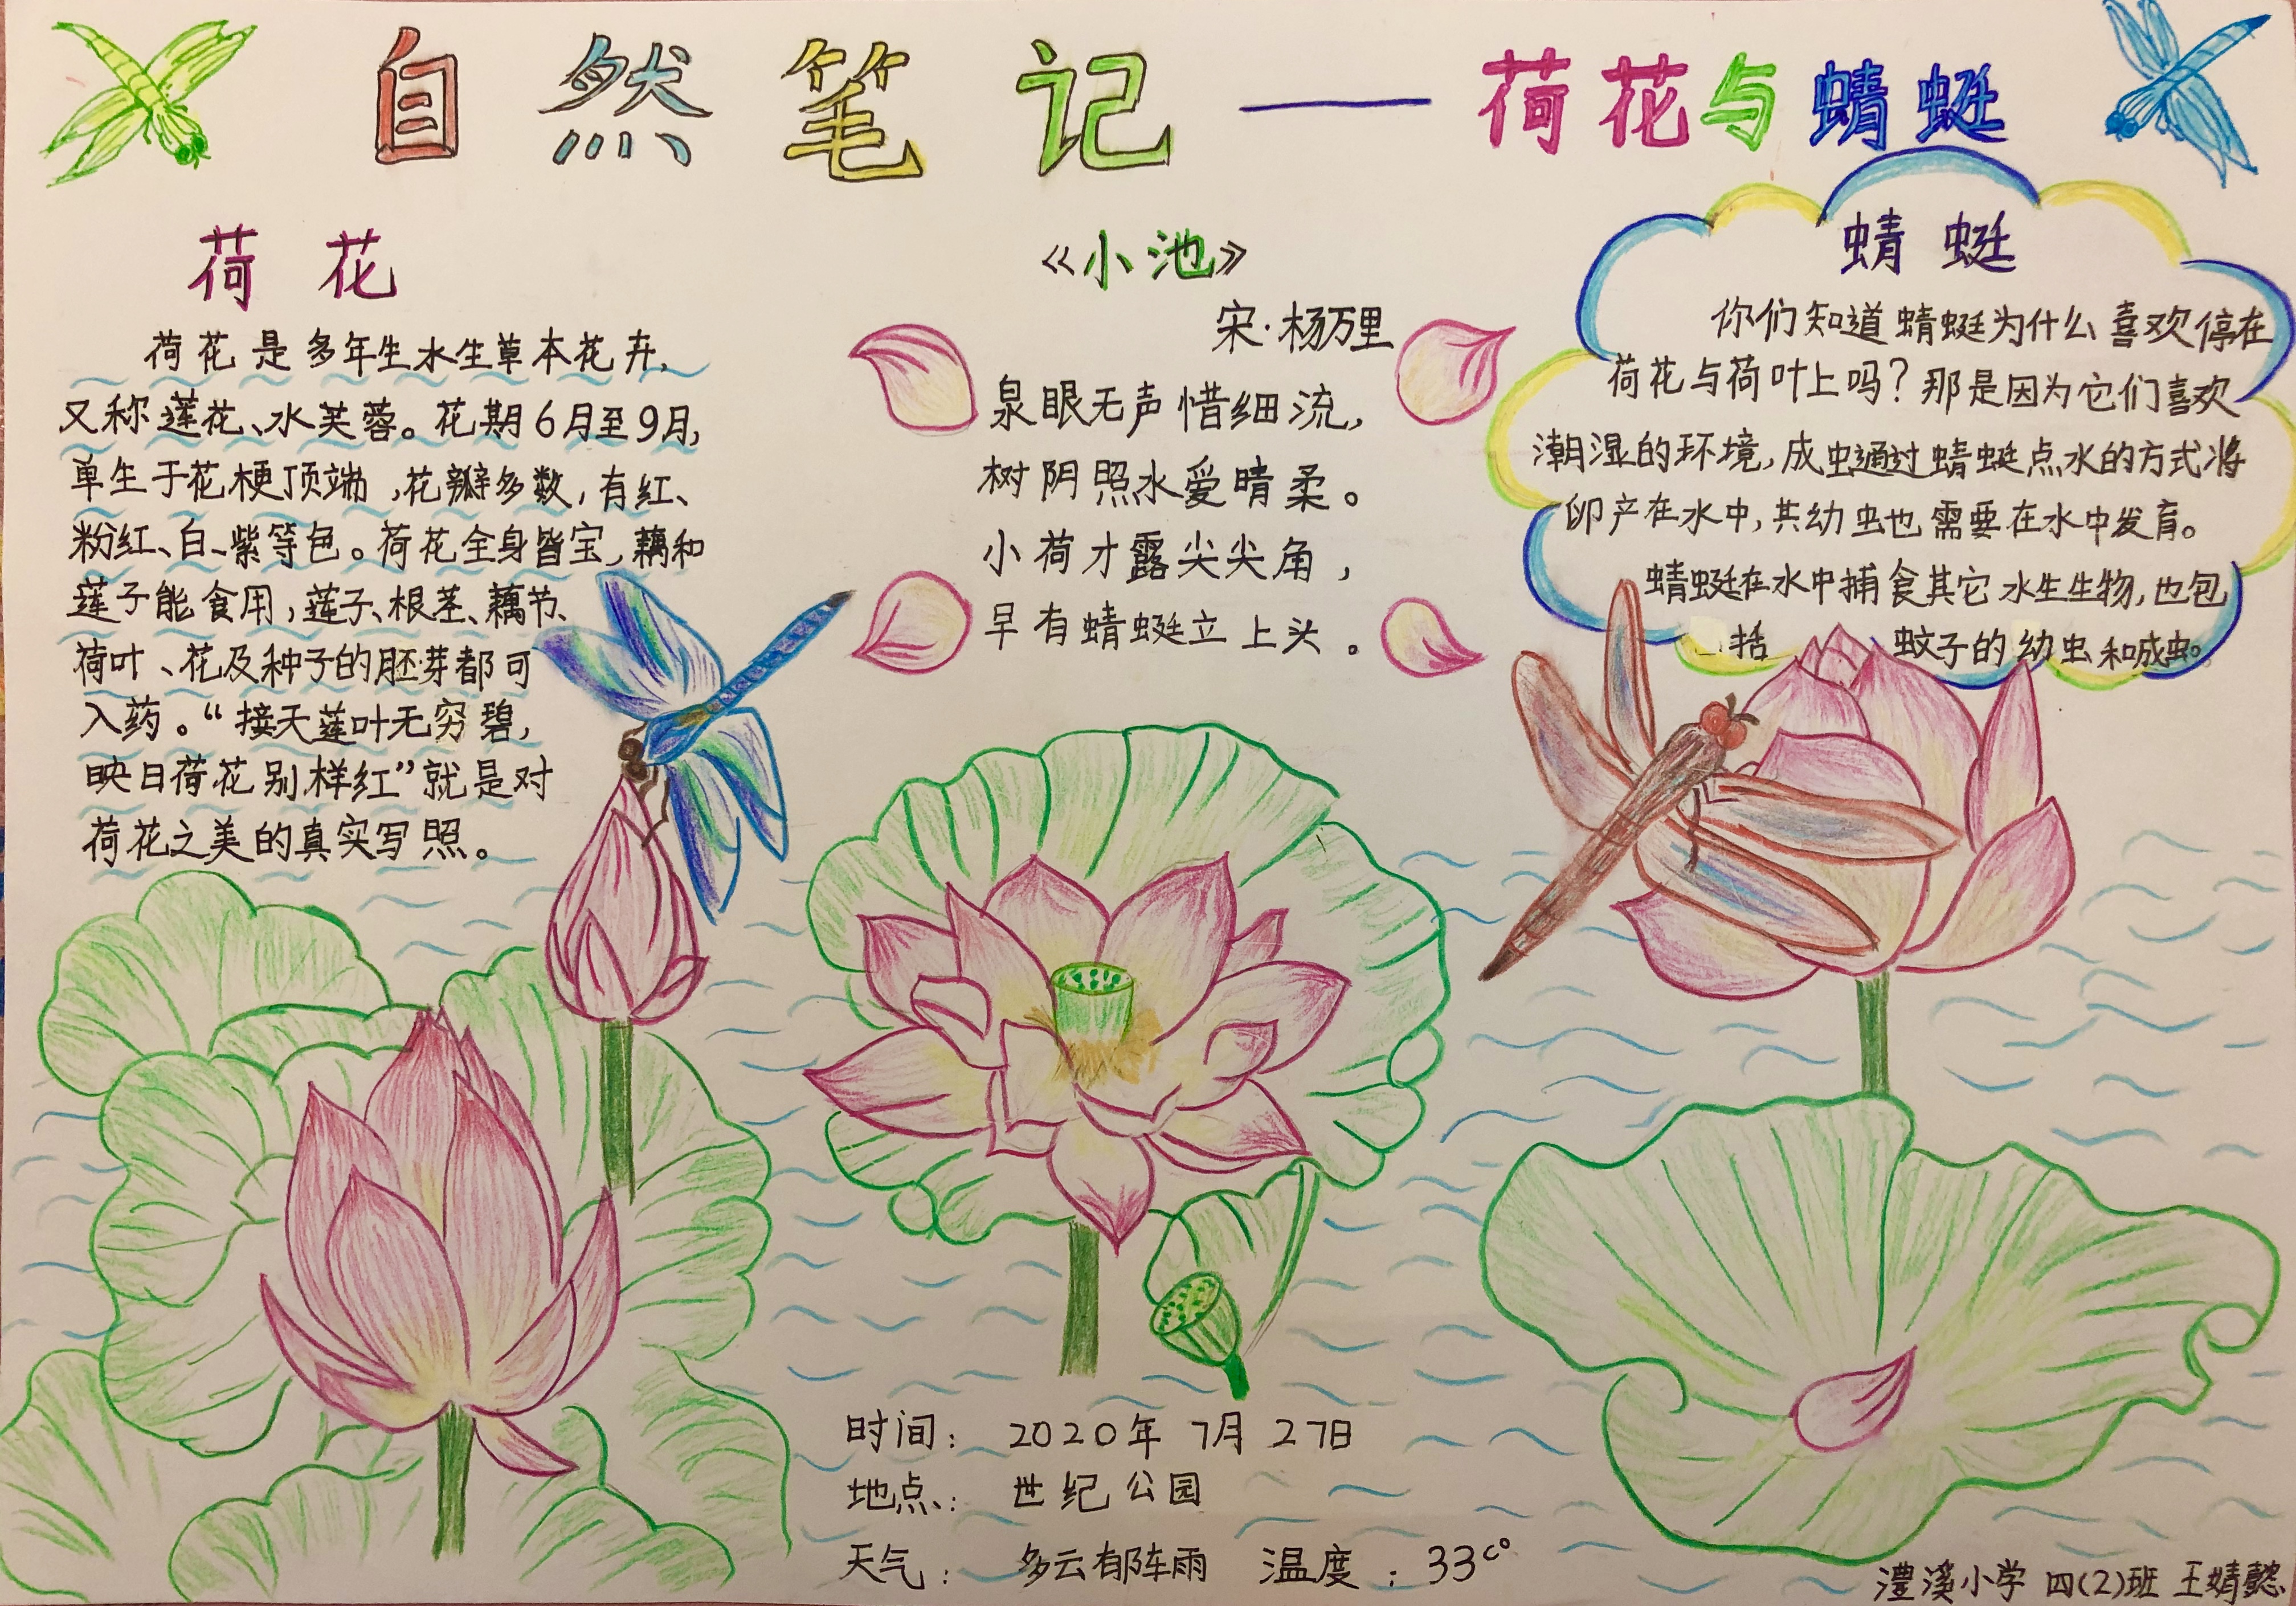 自然笔记——荷花与蜻蜓
荷花
荷花是多年生水生草本花卉,
又称莲花、水芙蓉。花期6月至9月,
单生于花梗顶端,花瓣多数,有红、
粉红、白、紫等色。荷花全身皆宝,藕和
莲子能食用,莲子、根茎、藕节、
荷叶、花及种子的胚芽都可
入药。“接天莲叶无穷碧,
映日荷花别样红”就是对
荷花之美的真实写照。
《小池》
宋·杨万里
泉眼无声惜细流,
树阴照水爱晴柔。
小荷才露尖尖角,
早有蜻蜓立上头。
蜻蜓
你们知道蜻蜓为什么喜欢停在
荷花与荷叶上吗?那是因为它们喜欢
潮湿的环境,成虫通过蜻蜓点水的方式将
卵产在水中,其幼虫也需要在水中发育。
蜻蜓在水中捕食其它水生生物,也包
括 蚊子的幼虫和成虫。
时间: 2020年7月27日
地点: 世纪公园
天气: 多云有阵雨 温度: 33℃
澧溪小学 四(2)班 王婧懿